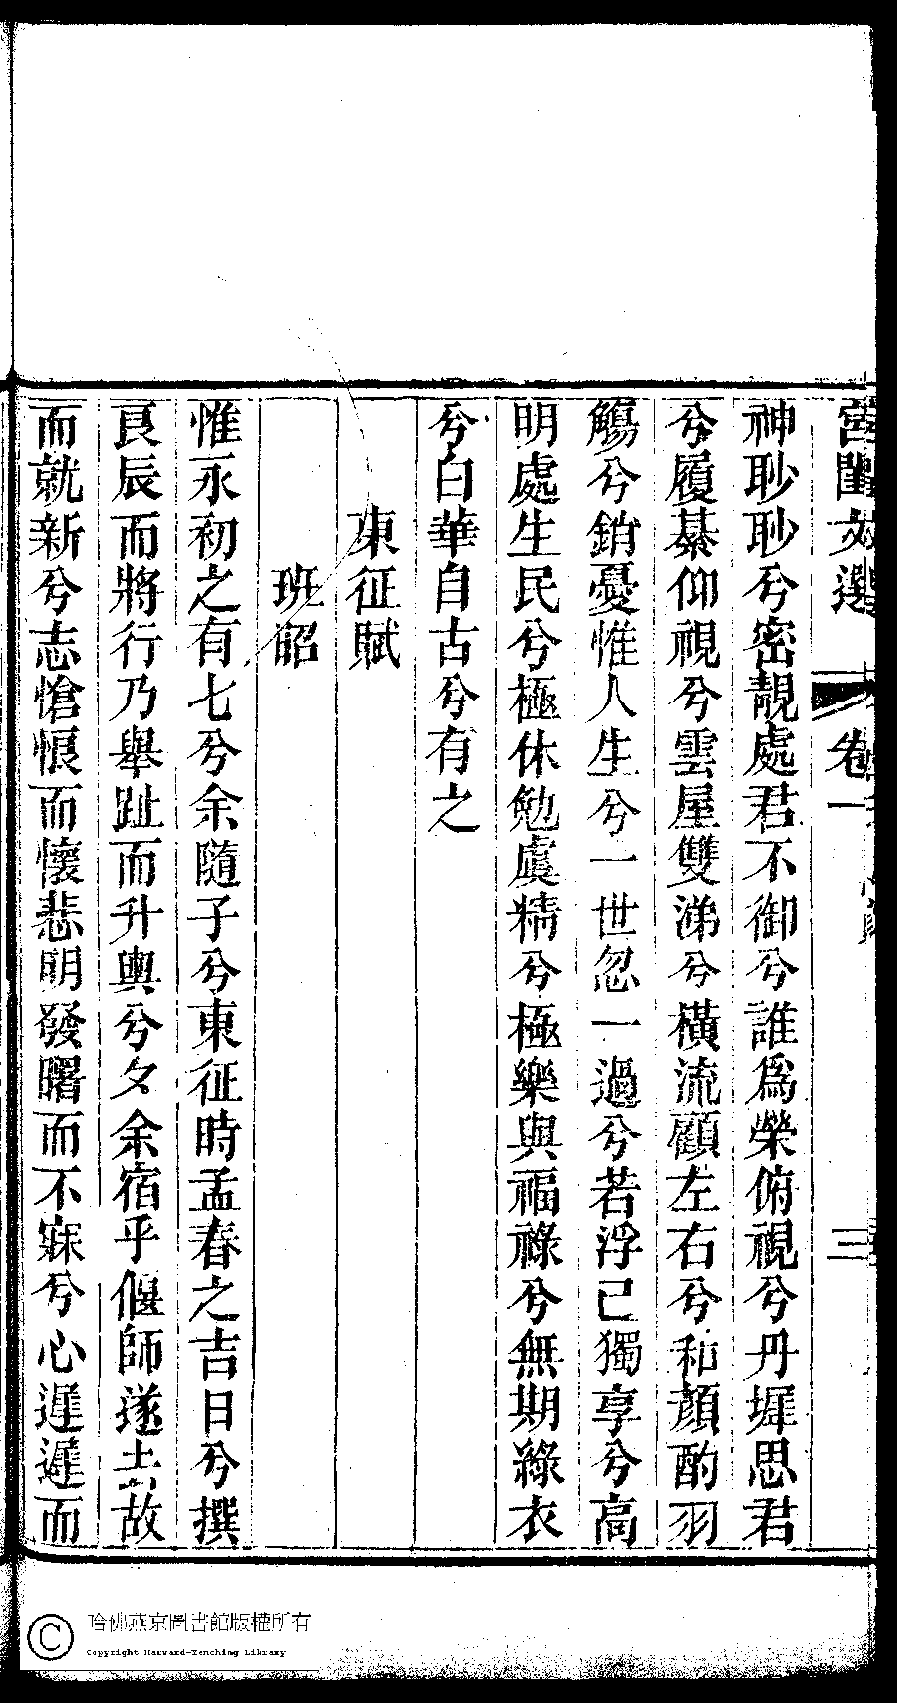 宮閨文選 卷一 三
神眇眇兮密靚處君不御兮誰爲榮俯視兮丹墀思君
兮履綦仰視兮雲屋雙涕兮橫流顧左右兮和顏酌羽
觴兮銷憂惟人生兮一世忽一過兮若浮已獨享兮高
明處生民兮極休勉虞精兮極樂與福祿兮無期綠衣
兮白華自古兮有之
東征賦
班昭
惟永初之有七兮余隨子兮東征時孟春之吉日兮撰
良辰而將行乃舉趾而升輿兮夕余宿乎偃師遂去故
而就新兮志愴悢而懷悲明發曙而不寐兮心遲遲而
© 哈佛燕京圖書館版權所有
Copyright Harvard-Yenching Library